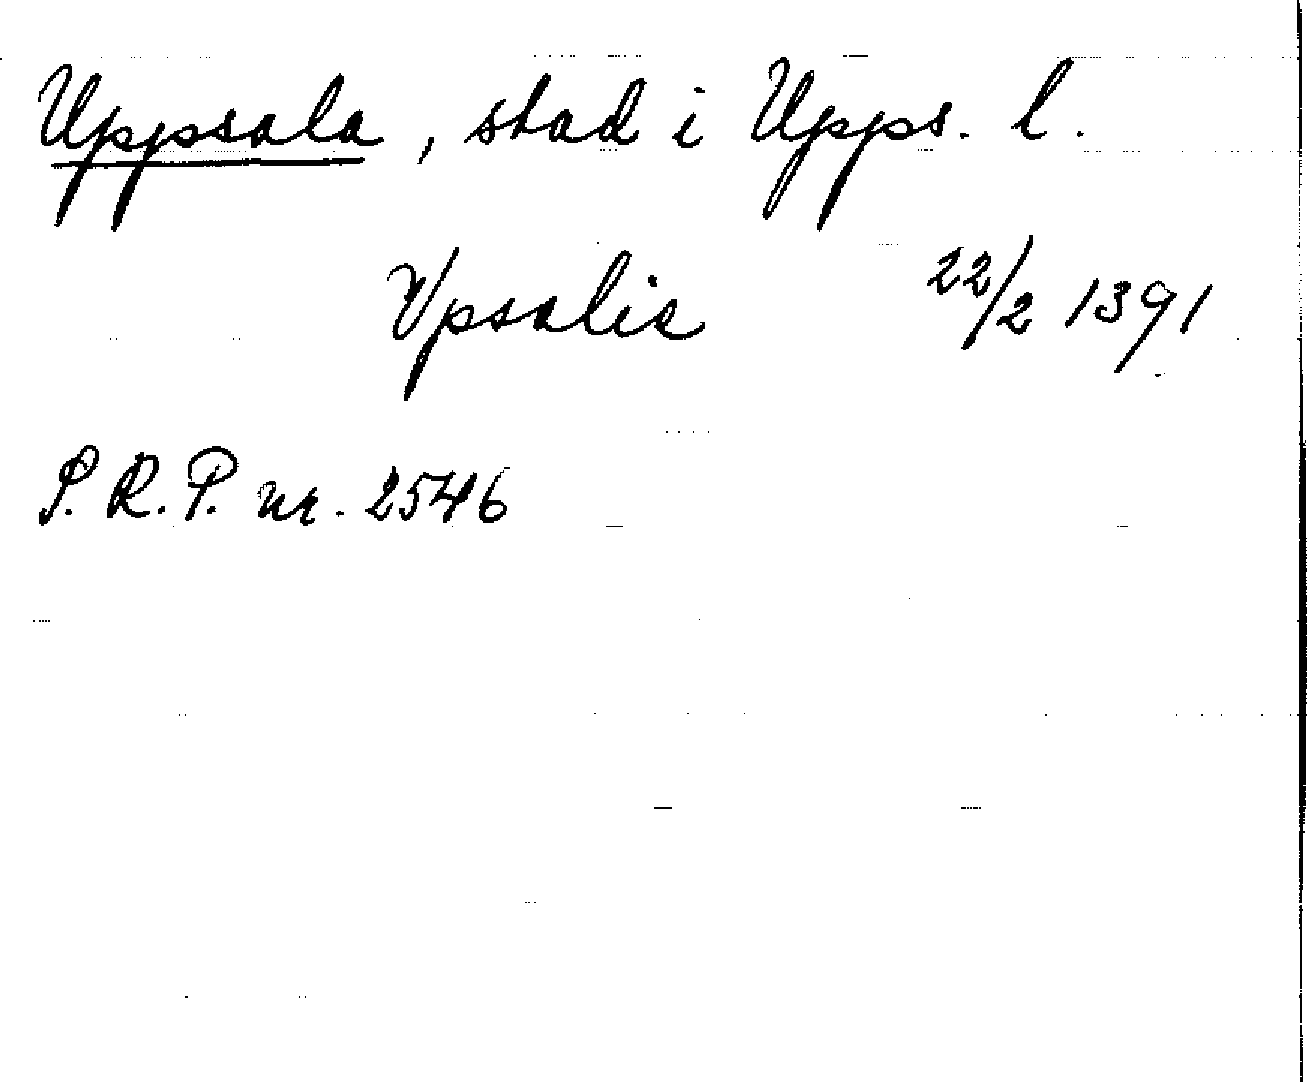 Uppsala, stad i Upps. l.
Vpsalis 22/2 1391
S.R.P. nr. 2546